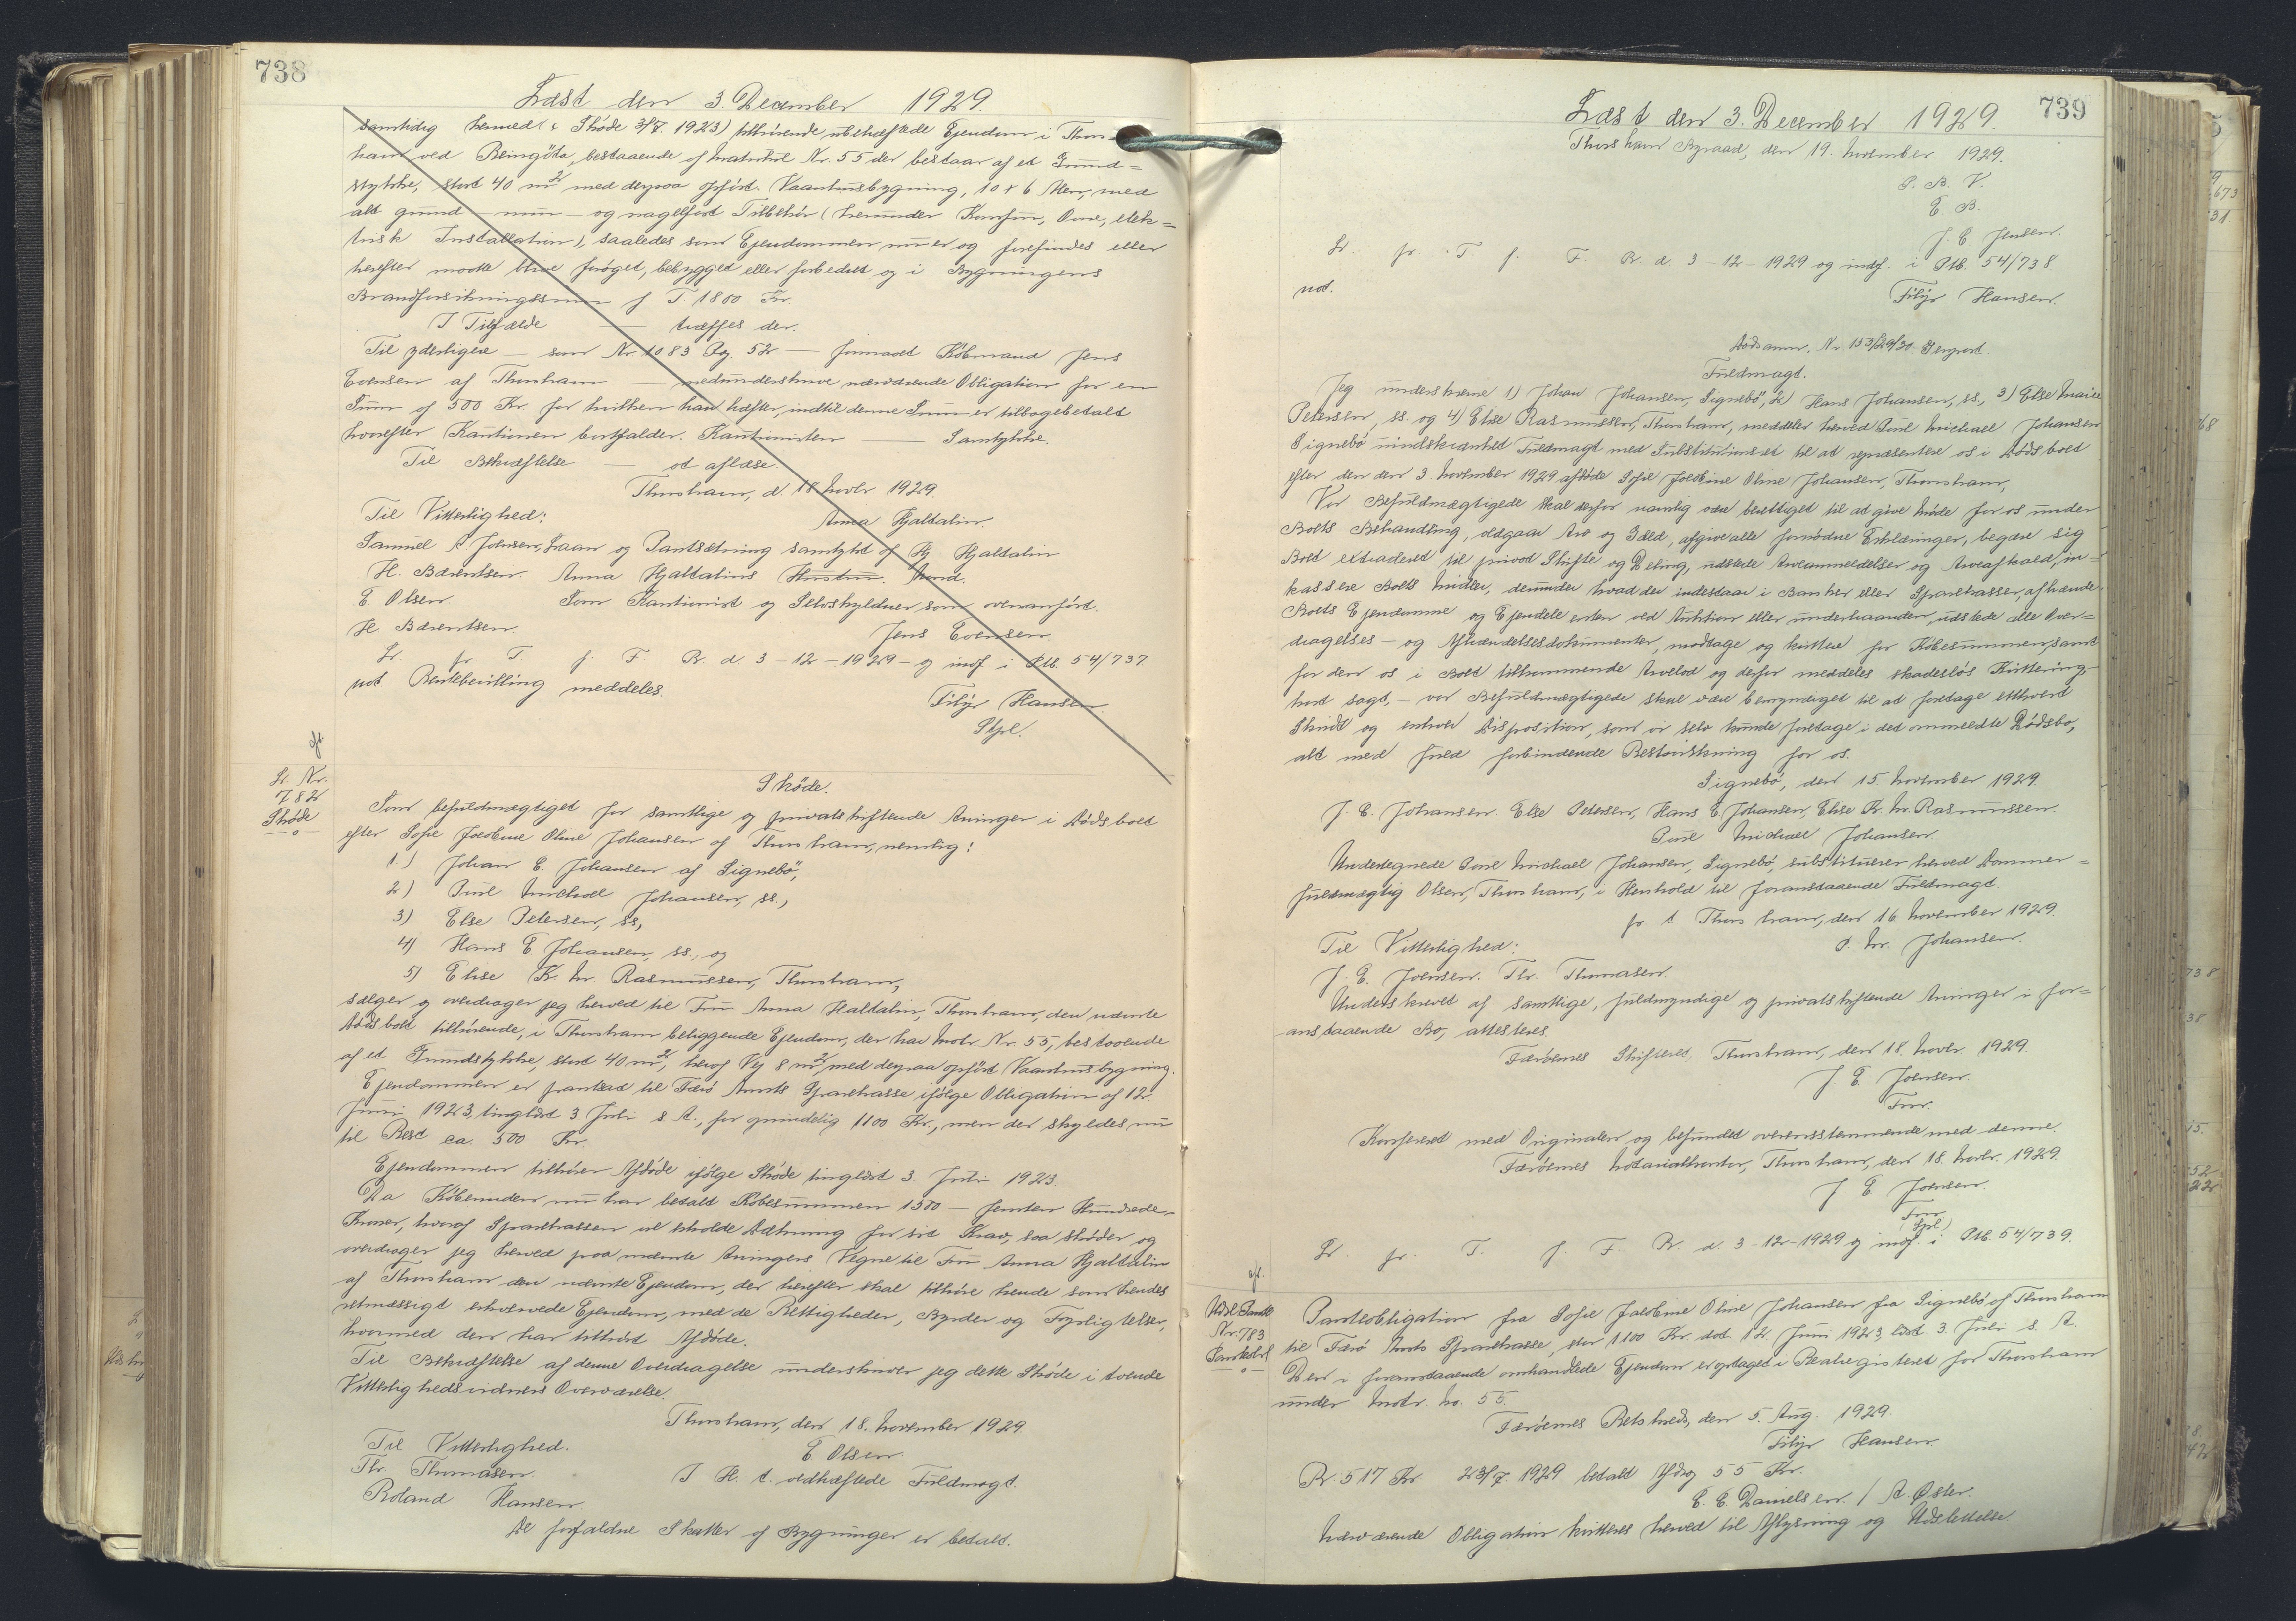 738
Læst den 3. December 1929.
samtidig hermed (: Skøde 3/7. 1923) tilhørende ubehæftede Ejendom i Thors-
havn ved Bringsta, bestaaende af Matrikul Nr. 55 der bestaar af et Grund=
stykke, stort 40 m² med derpaa opført. Vaaningsbygning, 10 x 6 Alen, med
alt grund - mur - og nagelfast Tilbehør (herunder Komfur, Ovne, elek=
trisk Installation), saaledes som Ejendommen nu er og forefindes eller
herefter maatte blive forøget, bebygget eller forbedret og i Bygningens
Brandforsikringssum f T. 1800 Kr.
I Tilfælde — træffes der.
Til yderligere — som Nr. 1083 Pag. 52 — formaaet Købmand Jens
Evensen af Thorshavn — medunderskrive nærværende Obligation for en
Sum af 500 Kr. for hvilken han hæfter, indtil denne Sum er tilbagebetalt
hvorefter Kautionen bortfalder. Kautionisten — Samtykke.
Til Bekræftelse — at aflæse.
Thorshavn, d. 18. Novbr. 1929.
Til Vitterlighed: Anna Hjaltalin.
Samuel A Joensen, Laan og Pantsætning samtykt af Hj Hjaltalin
H. Bærentsen. Anna Hjaltalins Mand.
E Olsen Som Kautionist og Selvskyldner som ovenanført.
H. Bærentsen. Jens Evensen.
Lr. fr T f. F. R. d 3-12-1929 - og indf i Ptb. 54/737.
not. Bevillling meddeles. Filip Hansen.
Spl.
afl.
Lr. Nr.
782
Skøde
Skøde.
Som befuldmægtiget for samtlige og privatskiftende Arvinger i Dødsboet
efter Sofie Jacobine Oline Johansen af Thorshavn, nemlig:
1) Johan E. Johansen af Signebø,
2) Poul Michael Johansen, ss.,
3) Else Petersen, ss,
4) Hans E Johansen, ss., og
5) Elise K. M Rasmussen, Thorshavn,
sælger og overdrager jeg herved til Fru Anna Hialtalin, Thorshavn, den nævnte
Dødsboet tilhørende, i Thorshavn beliggende Ejendom, der har Matr. Nr. 55, bestaaende
af et Grundstykke, stort 40 m², heraf Vej 8 m², med derpaa opført Vaaningsbygning.
Ejendommen er pantsat til Færø Amts Sparekasse ifølge Obligation af 12.
Juni 1923, tinglæst 3 Juli s. A., for oprindelig 1100 Kr., men der skyldes nu
til Rest ca. 500 Kr.
Ejendommen tilhører Afdøde ifølge Skøde tinglæst 3. Juli 1923.
Da Køberinden nu har betalt Købesummen 1500 - femten Hundrede-
Kroner, hvoraf Sparekassen vil erholde Dækning for sit Krav, saa skøder og
overdrager jeg herved paa nævnte Arvingers Vegne til Fru Anna Hjaltalin
af Thorshavn den nævnte Ejendom, der herefter skal tilhøre hende som hendes
retmæssigt erhvervede Ejendom, med de Rettigheder, Byrder og Forpligtelser,
hvormed den har tilhørt Afdøde.
Til Bekræftelse af denne Overdragelse underskriver jeg dette Skøde i tvende
Vitterlighedsvidners Overværelse.
Thorshavn, den 18. November 1929.
Til Vitterlighed. E Olsen
Thr Thomasen. I H. t. vedhæftede Fuldmagt.
Roland Hansen.
De forfaldne Skatter af Bygninger er betalt.
739
Læst den 3. December 1929.
Thorshavn Byraad, den 19. November 1929.
P. B. V.
E. B.
J. E Jensen.
Lr. fr. T. f. F. R. d 3-12-1929 og indf. i Ptb. 54/738.
not. Filip Hansen.
Dødsanm. Nr. 153/29/30. Genpart.
Fuldmagt.
Jeg underskrevne 1) Johan Johansen, Signebø, 2) Hans Johansen, ss., 3) Else Marie
Petersen, ss. og 4) Elise Rasmussen, Thorshavn, meddeler herved Poul Michael Johansen
Signebø uindskrænket Fuldmagt med Substitutionsret til at repræsentere os i Dødsboet
efter den den 3. November 1929 afdøde Sofie Jacobine Oline Johansen, Thorshavn,
Vor Befuldmægtigede skal derfor navnlig være berettiget til at give Møde for os under
Boets Behandling, vedgaa Arv og Gæld, afgive alle fornødne Erklæringer, begære sig
Boet extraderet til privat Skifte og Deling, udstede Arveanmeldelser og Arveafkald, in=
kassere Boets Midler, derunder hvad der indestaar i Banker eller Sparekasser, afhænde
Boets Ejendomme og Ejendele enten ved Auktion eller underhaanden, udstede alle Over=
dragelses - og Afhændelsesdokumenter, modtage og kvittere for Købesummen, samt
for den os i Boet tilkommende Arvelod og derfor meddele skadesløs Kvittering
kort sagt, - vor Befuldmægtigede skal være bemyndiget til at foretage ethvert
Skridt og enhver Disposition, som vi selv kunde foretage i det ommeldte Dødsbo,
alt med fuld forbindende Bestaaelskning for os.
Signebø, den 15. November 1929.
J. E. Johansen. Else Petersen, Hans E. Johansen, Elise K. M. Rasmussen.
Poul Michael Johansen.
Undertegnede Poul Michael Johansen, Signebø, substituerer herved Dommer=
fuldmægtig Olsen, Thorshavn, i Henhold til foranstaaende Fuldmagt.
p. t. Thorshavn, den 16. November 1929.
Til Vitterlighed: P. M. Johansen.
J. E. Joensen. Thr. Thomasen.
Underskrevet af samtlige, fuldmyndige og privatskiftende Arvinger i for=
anstaaende Bo, attesteres.
Færøernes Skifteret, Thorshavn, den 18. Novbr. 1929.
J. E. Joensen.
Fm.
Konfereret med Originalen og befundet overensstemmende med denne.
Færøernes Notarialkontor, Thorshavn, den 18. Novbr. 1929.
J. E. Joensen.
Fm
(Spl)
Lr. fr. T. f. F. R. d. 3-12-1929 og indf. i Ptb. 54/739.
afl.
Udsl. Pantb
Nr. 783
Panteobl
Panteobligation fra Sofie Jacobine Oline Johansen fra Signebø af Thorshavn
til Færø Amts Sparekasse, stor 1100 Kr. dat. 12. Juni 1923, læst 3. Juli s. A.
Den i foranstaaende omhandlede Ejendom er optaget i Realregisteret for Thorshavn
under Matr. No. 55.
Færøernes Retskreds, den 5. Aug. 1929.
Filip Hansen.
R. 517 Kr. 23/7. 1929 betalt Afdrag 55 Kr.
E. E. Danielsen. / A. Øster.
Nærværende Obligation kvitteres herved til Aflysning og Udslettelse